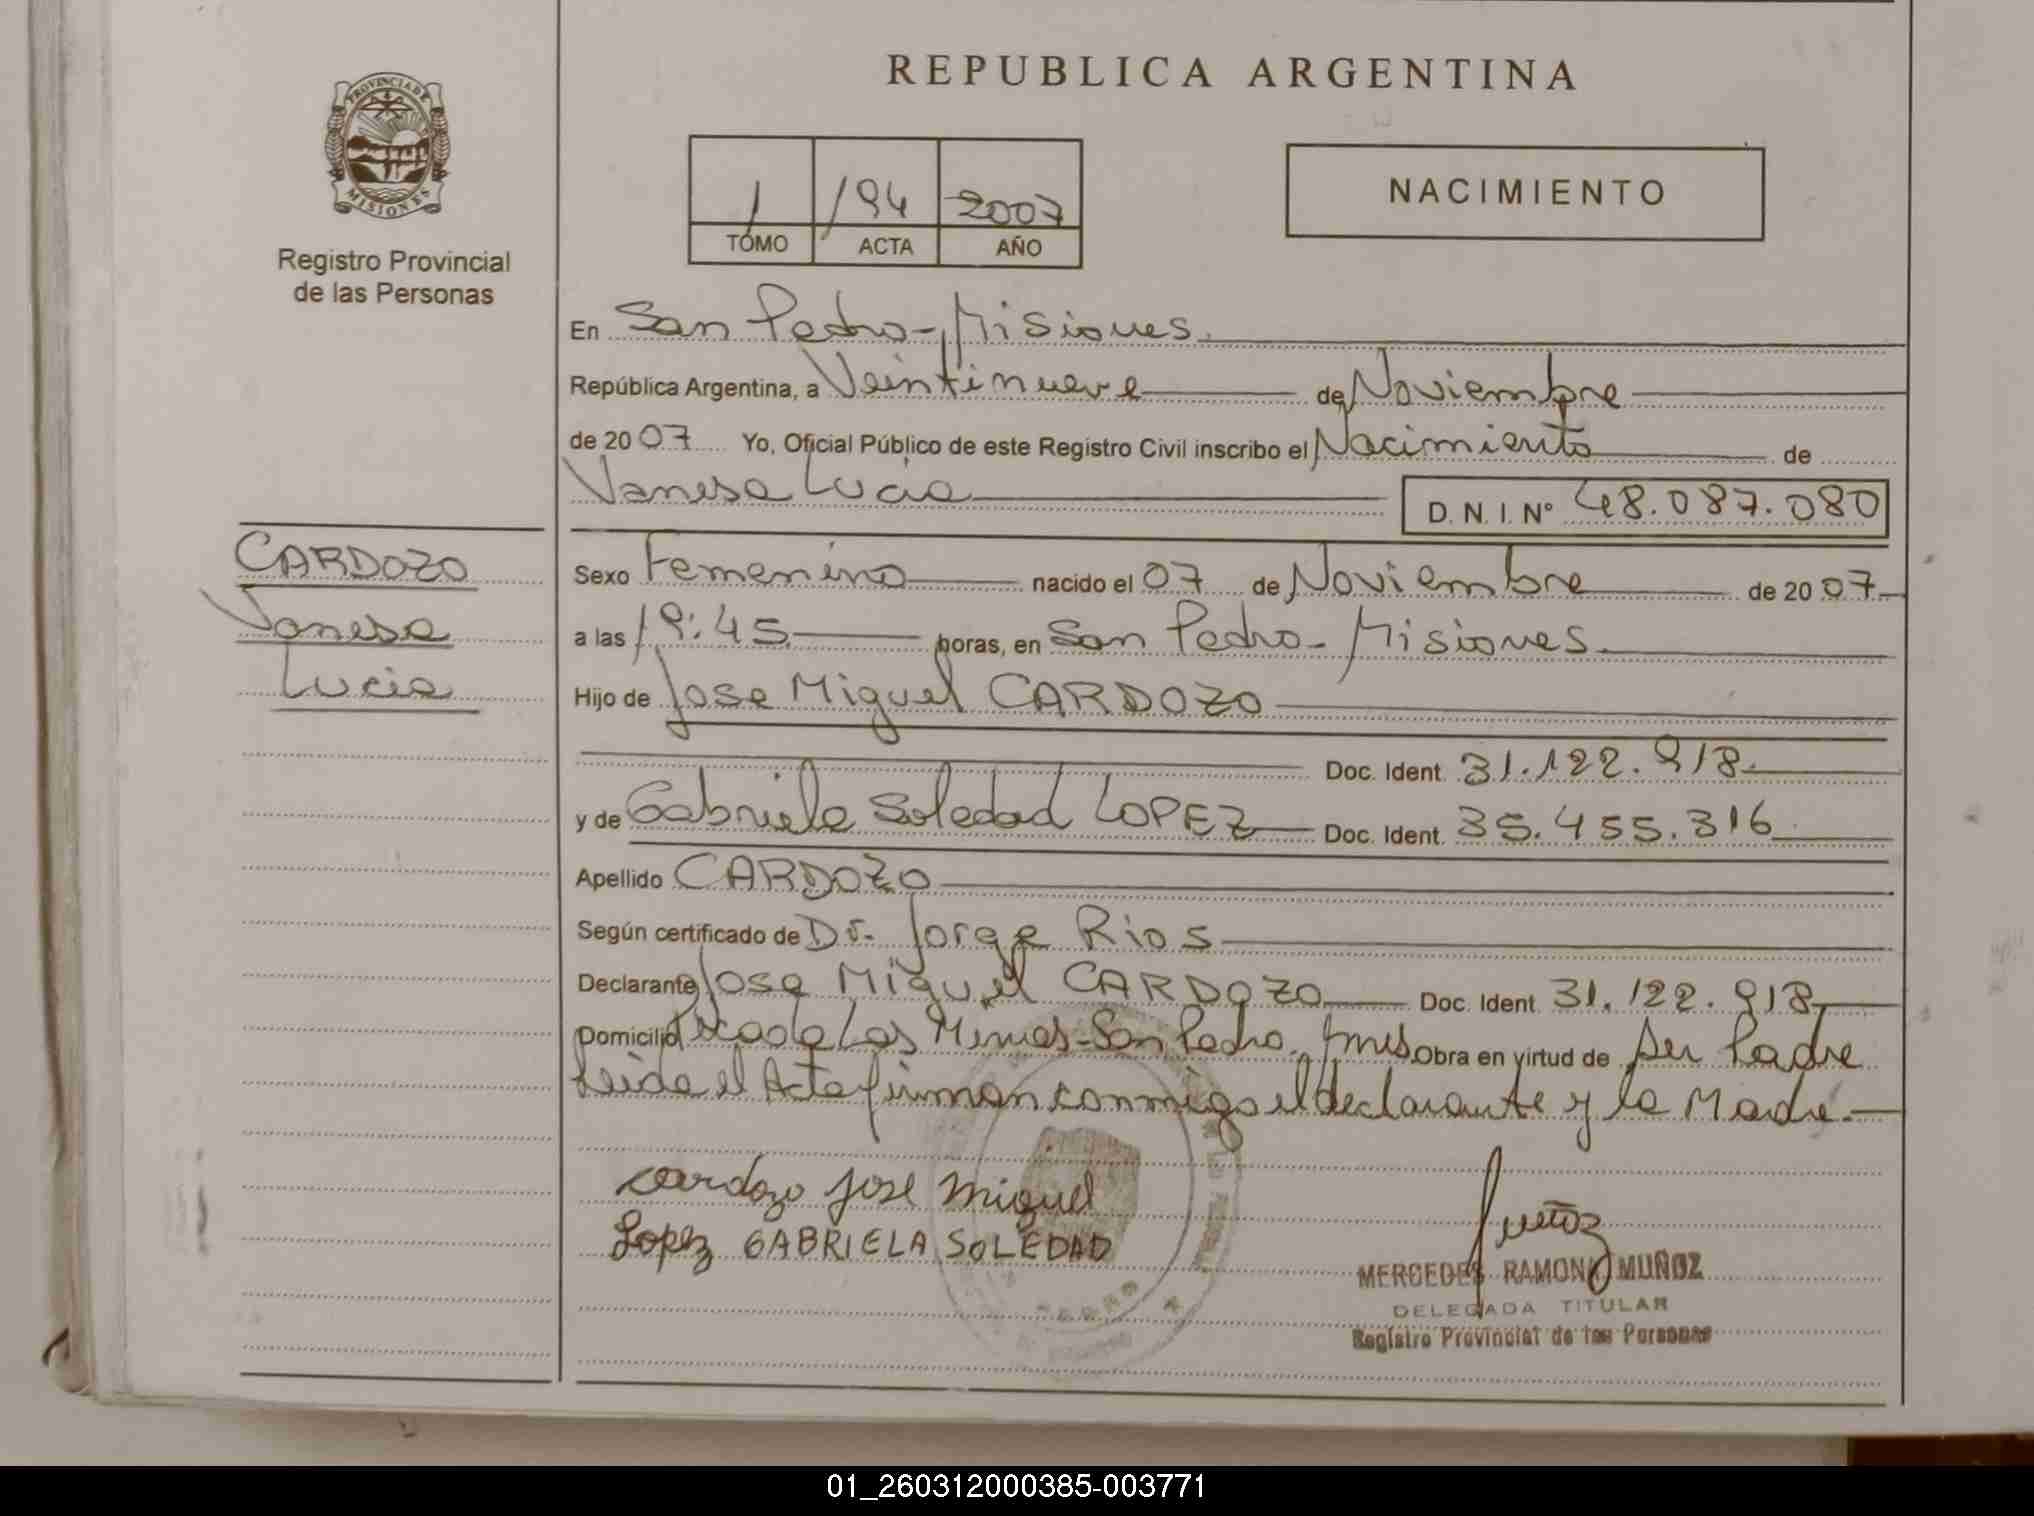 REPUBLICA ARGENTINA
PROVINCIA DE
MISIONES
Registro Provincial
de las Personas
1 194 2007
TOMO ACTA AÑO
NACIMIENTO
En San Pedro - Misiones.
República Argentina, a Veintinueve de Noviembre
de 2007 Yo, Oficial Público de este Registro Civil inscribo el Nacimiento de
Vanesa Lucia D. N. I. N° 48.087.080
CARDOZO
Vanesa
Lucia
Sexo Femenino nacido el 07 de Noviembre de 2007
a las 19:45 horas, en San Pedro - Misiones.
Hijo de Jose Miguel CARDOZO
Doc. Ident. 31.122.918.
y de Gabriela Soledad LOPEZ Doc. Ident. 35.455.316
Apellido CARDOZO
Según certificado de Dr. Jorge Rios
Declarante Jose Miguel CARDOZO Doc. Ident. 31.122.918
Domicilio Picada Las Minas - San Pedro. Mnes. Obra en virtud de Ser Padre
Leida el Acta firman conmigo el declarante y la Madre.
cardozo jose miguel
Lopez GABRIELA SOLEDAD
Muñoz
MERCEDES RAMONA MUÑOZ
DELEGADA TITULAR
Registro Provincial de las Personas
01_260312000385-003771